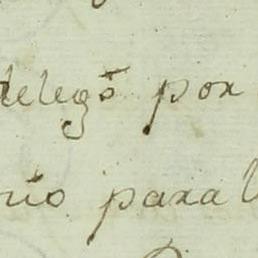 delegó por
rio para l